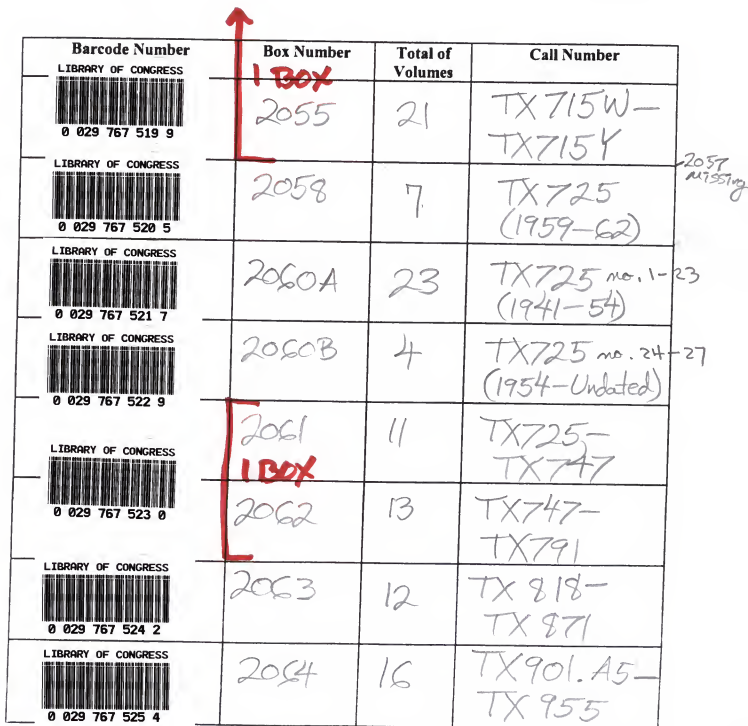 Barcode Number Box Number Total of Volumes Call Number
LIBRARY OF CONGRESS
0 029 767 519 9
1 BOX
2055 21 TX715W–
TX715Y
2057 missing
LIBRARY OF CONGRESS
0 029 767 520 5
2058 7 TX725
(1959–62)
LIBRARY OF CONGRESS
0 029 767 521 7
2060A 23 TX725 no. 1–23
(1941–54)
LIBRARY OF CONGRESS
0 029 767 522 9
2060B 4 TX725 no. 24–27
(1954–Undated)
LIBRARY OF CONGRESS
0 029 767 523 0
2061 11 TX725–
TX747
1 BOX
2062 13 TX747–
TX791
LIBRARY OF CONGRESS
0 029 767 524 2
2063 12 TX 818–
TX 871
LIBRARY OF CONGRESS
0 029 767 525 4
2064 16 TX901.A5–
TX 955